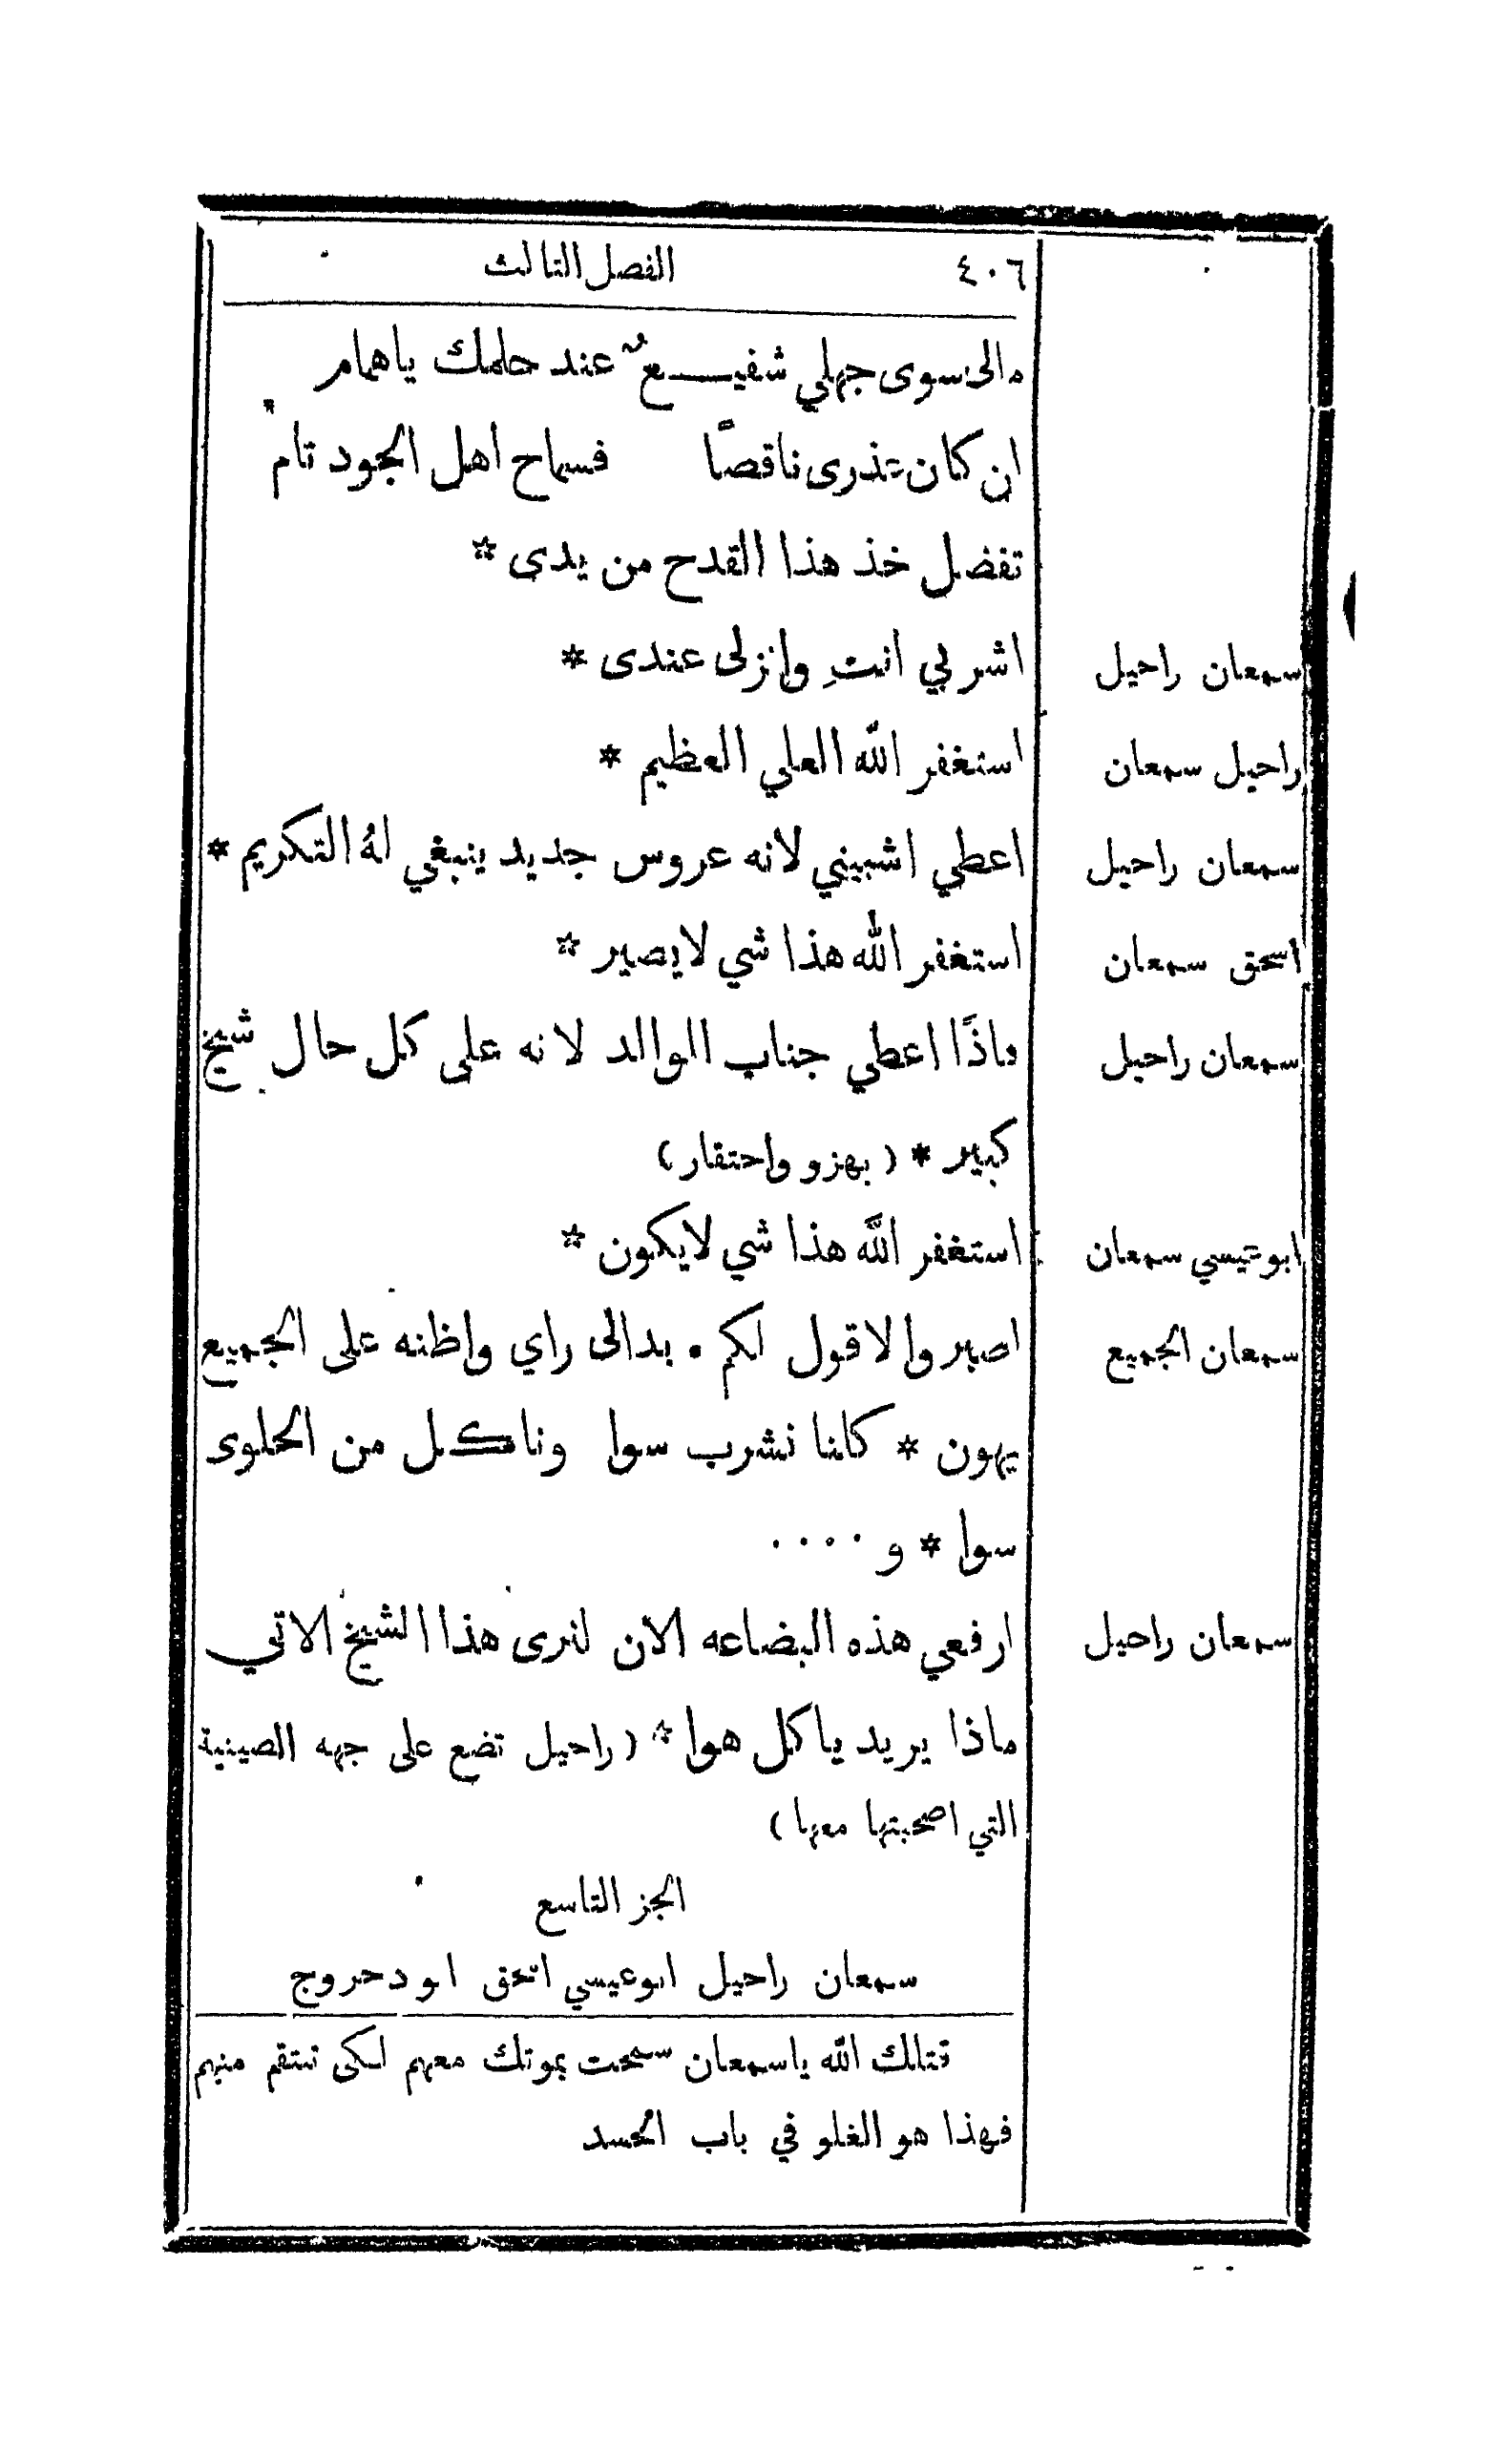 ٤٠٦ الفصل الثالث
مالى سوى جهلي شفيـــعٌ عند حلمك ياهمام
ان كان عذرى ناقصًا فسماح اهل الجود تام
تفضل خذ هذا القدح من يدى *
سمعان راحيل اشربي انتِ وانزلى عندى *
راحيل سمعان استغفر الله العلي العظيم *
سمعان راحيل اعطي اشبيني لانه عروس جديد ينبغي لهُ التكريم *
اسحق سمعان استغفر الله هذا شي لايصير *
سمعان راحيل فاذًا اعطي جناب الوالد لانه على كل حال شيخ
كبير * ( بهزو واحتقار )
ابوعيسي سمعان استغفر الله هذا شي لايكون *
سمعان الجميع اصبر والا قول لكم . بدالى راي واظنه على الجميع
يهون * كلنا نشرب سوا وناكل من الحلوى
سوا * و ....
سمعان راحيل ارفعي هذه البضاعه الان لنرى هذا الشيخ الاتي
ماذا يريد ياكل هوا * ( راحيل تضع على جهه الصينية
التي اصحبتها معها )
الجز التاسع
سمعان راحيل ابوعيسي اسحق ابو دحروج
قتلك الله ياسمعان سمحت بموتك معهم لكى تنتقم منهم
فهذا هو الغلو في باب الحسد